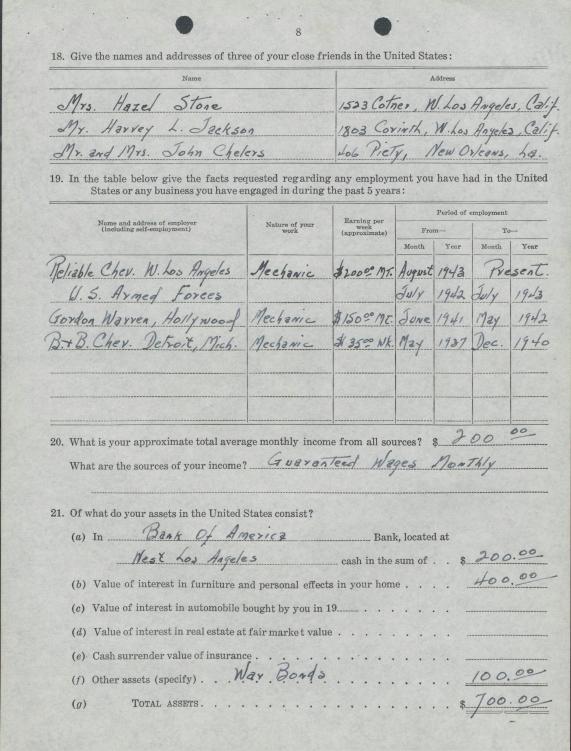 8
18. Give the names and addresses of three of your close friends in the United States:
Name Address
Mrs. Hazel Stone 1523 Cotner, W. Los Angeles, Calif.
Mr. Harvey L. Jackson 1803 Corinth, W. Los Angeles, Calif.
Mr. and Mrs. John Chelers 406 Piety, New Orleans, La.
19. In the table below give the facts requested regarding any employment you have had in the United
States or any business you have engaged in during the past 5 years:
Name and address of employer (including self-employment) Nature of your work Earning per week (approximate) Period of employment
From— To—
Month Year Month Year
Reliable Chev. W. Los Angeles Mechanic $200.00 MT. August 1943 Present.
U.S. Armed Forces July 1942 July 1943
Gordon Warren, Hollywood Mechanic $150.00 MT. June 1941 May 1942
B.+B. Chev. Detroit, Mich. Mechanic $35.00 WK. May 1937 Dec. 1940
20. What is your approximate total average monthly income from all sources? $ 200.00
What are the sources of your income? Guaranteed Wages Monthly
21. Of what do your assets in the United States consist?
(a) In Bank Of America Bank, located at
West Los Angeles cash in the sum of . . $ 200.00
(b) Value of interest in furniture and personal effects in your home . . . . 400.00
(c) Value of interest in automobile bought by you in 19...... . . . . . . .
(d) Value of interest in real estate at fair market value . . . . . . . . .
(e) Cash surrender value of insurance . . . . . . . . . . . . . .
(f) Other assets (specify) . War Bonds . . . . . . . 100.00
(g) TOTAL ASSETS . . . . . . . . . . . . . . . . $ 700.00